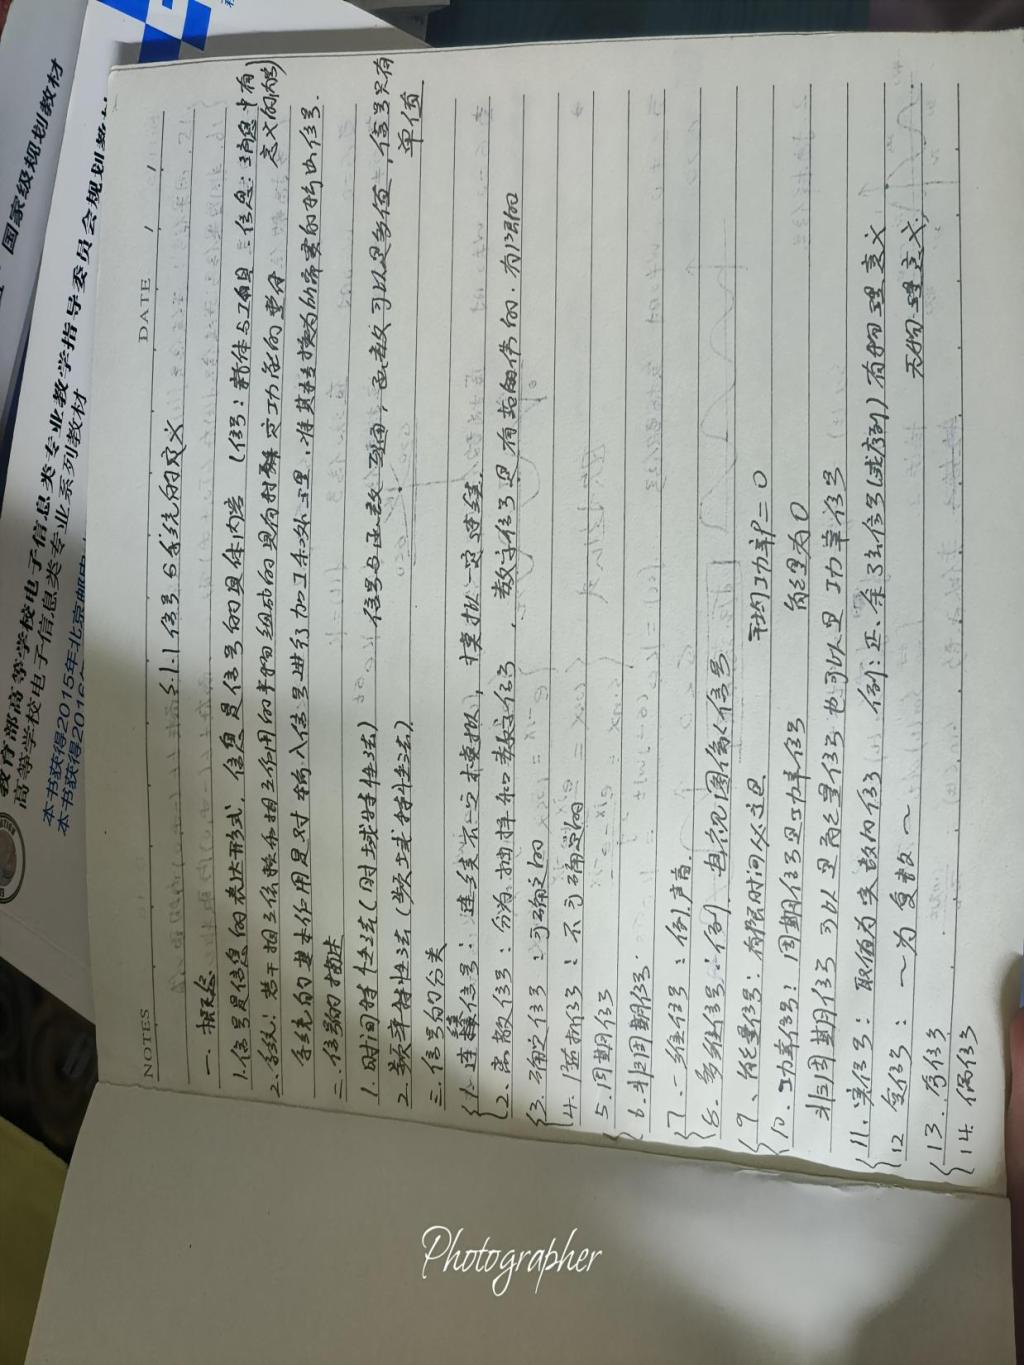 国家级规划教材
教育部高等学校电子信息类专业教学指导委员会规划教材
高等学校电子信息类专业系列教材
本书获得2015年北京邮电
本书获得2016年
NOTES
DATE / /
§1.1 信号与系统的定义
一.概念
1.信号是信息的表达形式,信息是信号的具体内容 (信号:载体与工具 信息:消息中有
意义的内容)
2.系统:若干相互依赖和相互作用的事物组成的具有特定功能的整体
系统的基本作用是对输入信号进行加工和处理,将其转换为所需要的输出信号.
二.信号的描述
1.时间特性法(时域特性法) 信号与函数 函数可以是多值,信号只有
单值
2.频率特性法(频域特性法)
三.信号的分类
1.连续信号:连续不一定模拟,模拟一定连续.
2.离散信号:分为抽样和数字信号. 数字信号是
3.确定信号:可确定的
4.随机信号:不可确定的
5.周期信号
6.非周期信号.
7.一维信号:例,声音.
8.多维信号:例,电视图像信号
9、能量信号:有限时间 平均功率P=0
10.功率信号:周期信号是功率信号 能量为0
非周期信号可以是能量信号也可以是功率信号
11.实信号:取值为实数的信号 例:正、余弦信号(或序列)有物理意义
12 复信号:~为复数~ 无物理意义.
13.奇信号
14.偶信号
Photographer